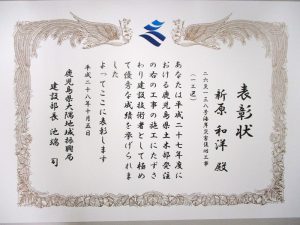 表彰状
二六災一三八号海岸災害復旧工事
(一工区)
新原 和洋 殿
あなたは平成二十七年度に
おける鹿児島県土木部発注
の右の工事の施工にたずさ
わり建設技術者として極め
て優秀な成績を挙げられま
した
よってここに表彰します
平成二十八年十月五日
鹿児島県大隅地域振興局
建設部長 池端 司